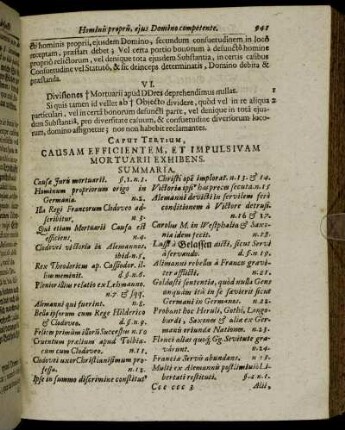 Hominis proprii, ejus Domino competente. 941
& hominis proprii, ejusdem Domino, secundum consuetudinem in loco
receptam, præstari debet; Vel certa portio bonorum à defuncto homine
proprio relictorum, vel denique tota ejusdem Substantia, in certis casibus
Consuetudine vel Statuto, & sic deinceps determinatis, Domino debita &
præstanda.
VI.
Divisiones † Mortuarii apud DDres deprehendimus nullas.
Si quis tamen id vellet ab † Objecto dividere, quòd vel in re aliqua 2
particulari, vel in certâ bonorum defuncti parte, vel denique in totâ ejusdem
Substantiâ, pro diversitate casuum, & consuetudine diversorum locorum,
domino assignetur; nos non habebit reclamantes.
CAPUT TERTIUM,
CAUSAM EFFICIENTEM, ET IMPULSIVAM
MORTUARII EXHIBENS.
SUMMARIA.
Causa Juris mortuarii. §.1.n.1.
Hominum propriorum origo in
Germania. n.2.
Illa Regi Francorum Clodoveo adscribitur.
n.3.
Qui etiam Mortuarii Causa est
efficiens. n.4.
Clodovei victoria in Alemannos.
ibid. n.5.
Rex Theodericus ap. Cassiodor. illius meminit.
d. §. n.6.
Plenior illius relatio ex Lehmanno.
n.7 & sqq.
Alemanni qui fuerint. n.8.
Bella ipsorum cum Rege Hilderico
& Clodoveo. d.§. n.9.
Felix primùm illorũ Successus n.10
Cruentum prælium apud Tolbiacum
cum Clodoveo. n.11.
Clodovei uxor Christianissimum professa.
n.12.
Ipse in summo discrimine constitut9
Christi opē implorat. n.13. & 14.
Victoria ipsi9 hos precus secuta. n.15
Alemanni devicti in servilem ferè
conditionem à Victore detrusi.
n.16 & 17.
Carolus M. in Westphalia & Saxonia
idem fecit. n.18.
Lassi & Gelassen dicti, sicut Servi
à servando. d.§. n.19.
Alemanni rebelles à Francis graviter
afflicti. n.21.
Goldasti sententia, quòd nulla Gens
unquam ità in se sævierit sicut
Germani in Germanos. n.22.
Probant hoc Heruli, Gothi, Longobardi,
Saxones & aliæ ex Germania
oriunda Nationes. n.23.
Franci alias quoq; Gg. Servitute gravârunt.
n.24.
Francia Servis abundans. n.25.
Multi ex Alemannis postliminiò Libertati
restituti. §.
Ccc ccc 3 Alii,